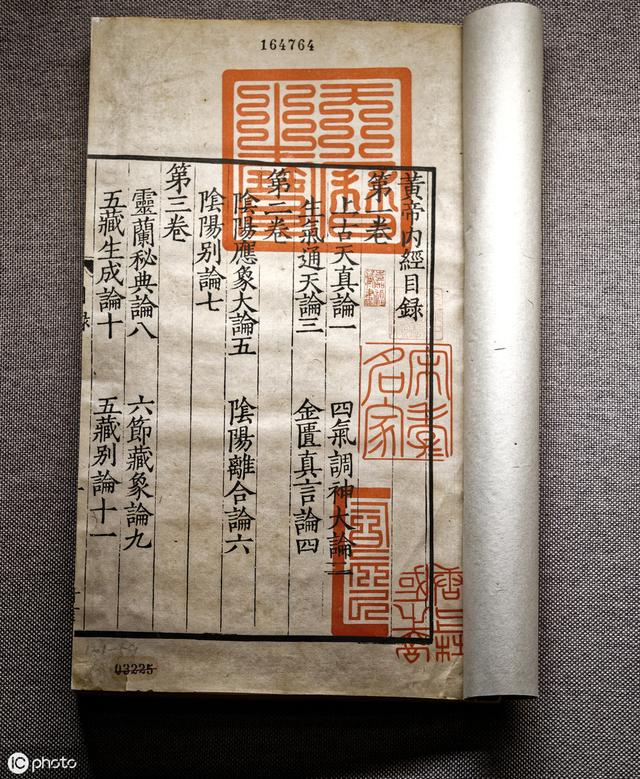 164764
黃帝内經目録
第一卷
上古天真論一　四氣調神大論二
生氣通天論三　金匱真言論四
第二卷
陰陽應象大論五　陰陽離合論六
陰陽别論七
第三卷
靈蘭秘典論八　六節藏象論九
五藏生成論十　五藏别論十一
03225
iC photo